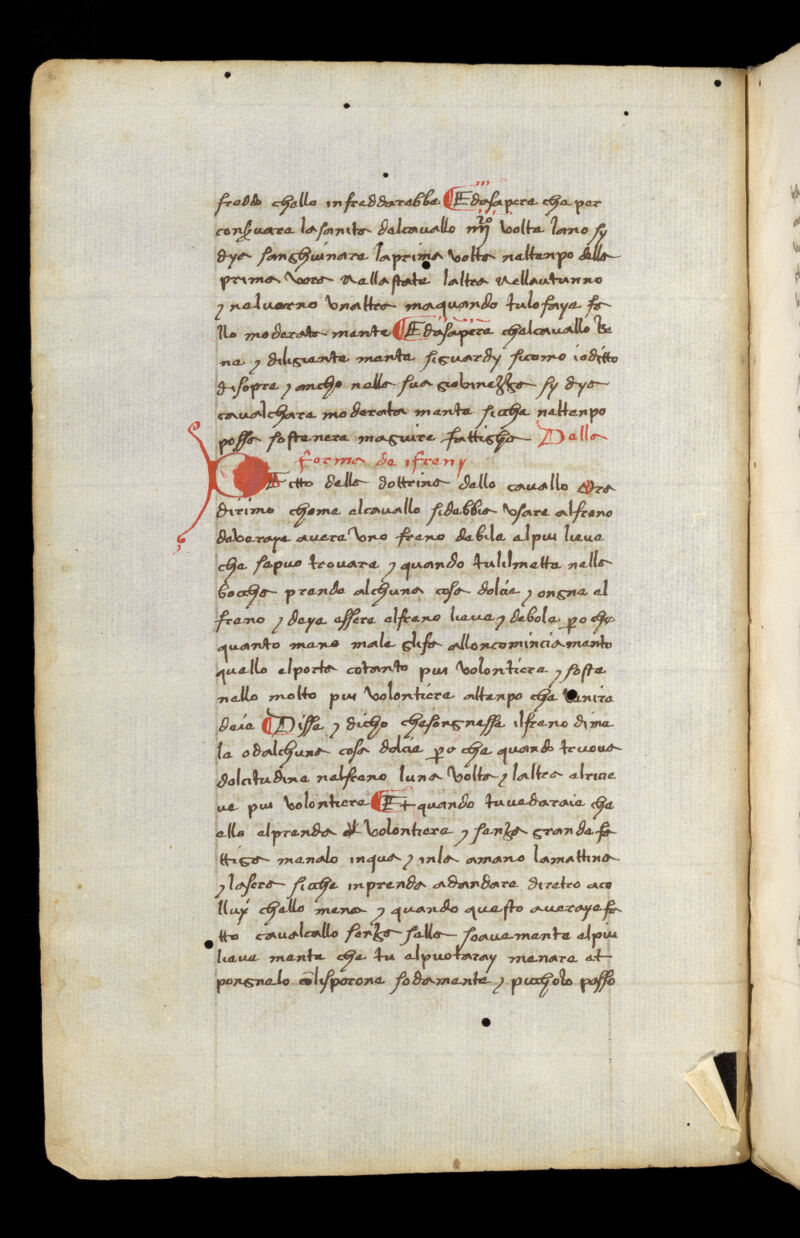 freddo chello infreddarebbe Edasapere che per
conseruare lasanita delcauallo iiij volte lano sy
dye sanghuinare laprima volta neltenpo della
prima vera nella state laltra nellautunno
ɣ neluerno vnaltra maquando tulofaye fa
llo moderata mente Edasapere chelcauallo be
ne ɣ diligiente mente siguardy sicomo ioditto
disopra ɣ ancho nella sua giovinezza sy dye
caualchare moderata mente sicche neltenpo
possa sostenere maguire fattigha Della
forma de ifreny
Ditto della dottrina dello cauallo Ora
dirimo chome elcauallo sidebbia vsare alfreno
deberaye auere vno freno debile elpiu lieue
che sapuo trouare ɣ quando tulilmetta nella
boccha prende alchuna cosa dolcie ɣ ongne el
freno ɣ deye essere elfreno lieue ɣ debole pero che
quanto mano male glifa alloncominciamento
quello elporta cotanto piu volontiere ɣ soste
nello molto piu volontiere altenpo che venire
deie Dissa ɣ dicho chesongnessa ilfreno dime
la odalchuna cosa dolcie pero che quando truoua
dolcitudine nelfreno luna volta ɣ laltra elricie
ue piu volontiere Et quando tuuedaraie che
ello elprenda volontiere ɣ senza granda fa
ttiga menalo inqua ɣ inla amano lamattina
ɣ lasera sicche inprenda adandare dirétro aco
lluy chello mena ɣ quando questo aueraye fa
tto caualcallo senza sella soauemente elpiu
lieue mente che tu elpuotaray menare et
pongnelo colisperone sodamente ɣ picciolo passo